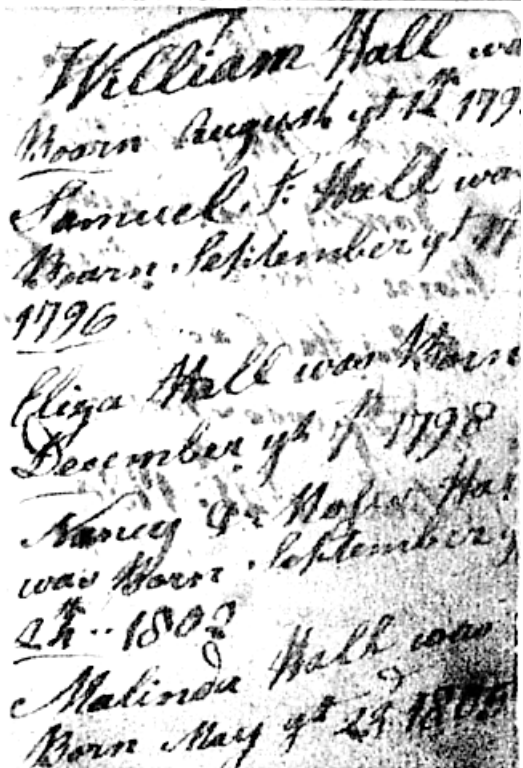 William Hall wa
Boorn August yt 12th 179
Samuel F. Hall was
Boarn September yt 17
1796
Eliza Hall was Boarn
December yt 7th 1798
Nancy Ha
was Born September y
1802
Malinda Hall was
Born May yt 1805